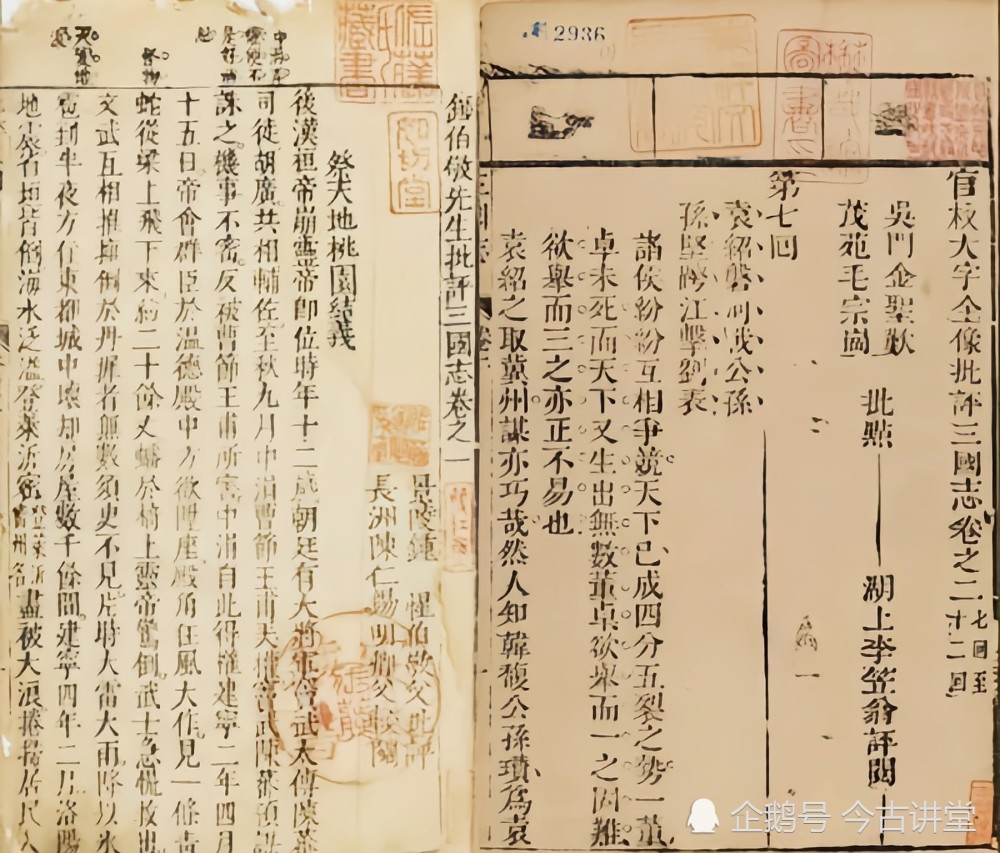 2986
官板大字全像批評三國志卷之二 七回至十二回
吳門金聖歎
茂苑毛宗崗
批點
湖上李笠翁評閱
第七回
袁紹磐河戰公孫
孫堅跨江擊劉表
諸侯紛紛互相爭競天下已成四分五裂之勢一董
卓未死而天下又生出無數董卓欲舉而一之固難
欲舉而三之亦正不易也
袁紹之取冀州謀亦巧哉然人知韓馥公孫瓚為袁
鍾伯敬先生批評三國志卷之一
景陵鍾 惺伯敬父批評
長洲陳仁錫明卿父較閱
祭天地桃園結義
後漢桓帝崩靈帝即位時年十二歲朝廷有大將軍竇武太傅陳蕃
司徒胡廣共相輔佐至秋九月中涓曹節王甫權竇武陳蕃預謀
誅之機事不密反被曹節王甫所害中涓自此得權建寧二年四月
十五日帝會群臣於溫德殿中方欲陞座殿角狂風大作見一條青
蛇從梁上飛下來約二十餘丈蟠於椅上靈帝驚倒武士急慌救出
文武互相推擁倒於丹墀者無數須臾不見片時大雷大雨降以氷
雹到半夜方住東都城中壞却房屋數千餘間建寧四年二月洛陽
地震省垣皆倒海水泛溢登萊沂密登萊沂州名盡被大浪捲掃居民入
企鹅号 今古讲堂